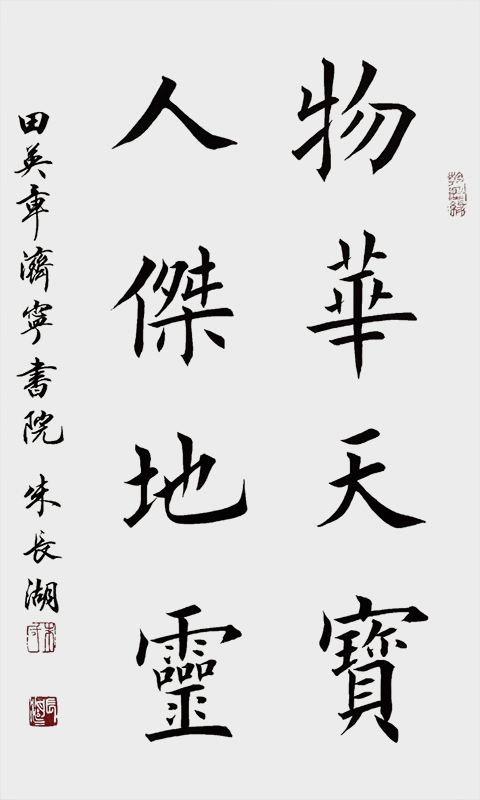 物華天寶
人傑地靈
田英章濟寧書院 朱長湖